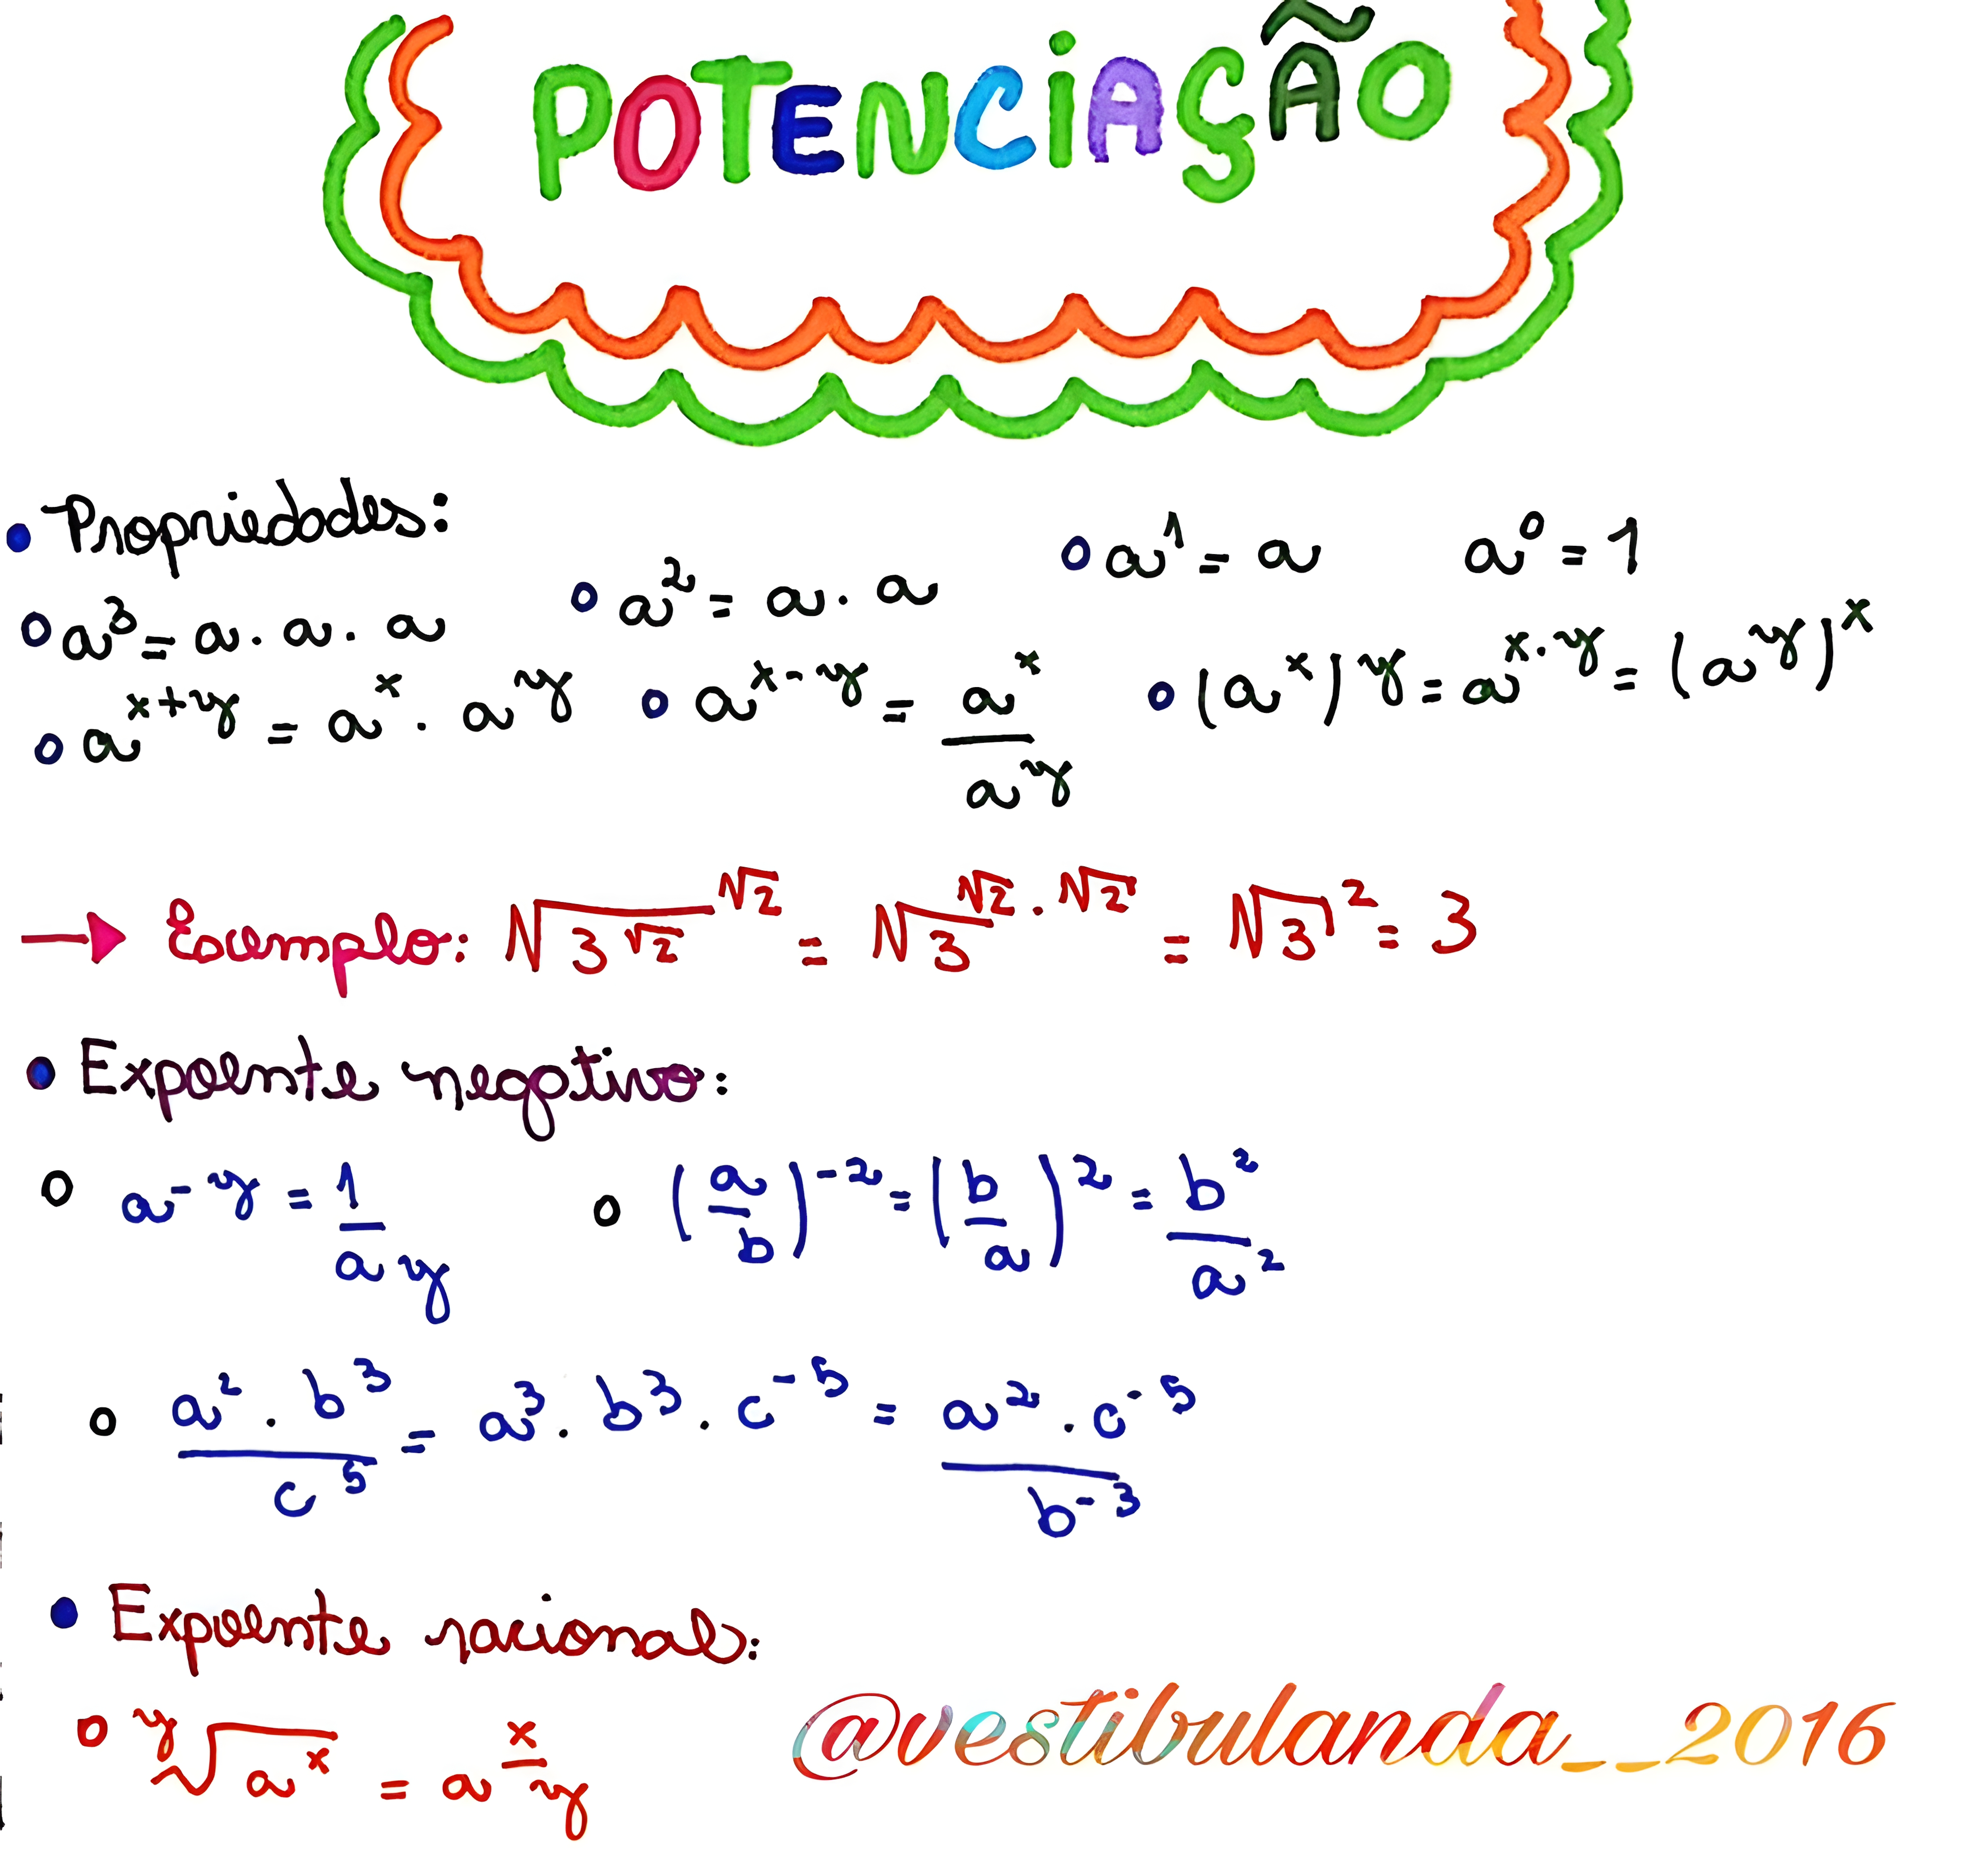 POTENCIAÇÃO
• Propriedades:
∘ a³ = a . a . a ∘ a² = a . a ∘ a¹ = a a⁰ = 1
∘ a^(x+y) = a^x . a^y ∘ a^(x-y) = a^x / a^y ∘ (a^x)^y = a^(x.y) = (a^y)^x
→ Exemplo: √(3^√2)^√2 = √3^(√2 . √2) = √3² = 3
• Expoente negativo:
∘ a^(-y) = 1 / a^y ∘ (a/b)^(-2) = (b/a)² = b² / a²
∘ a² . b³ / c⁵ = a³ . b³ . c^(-5) = a² . c^(-5) / b^(-3)
• Expoente racional:
∘ ʸ√(a^x) = a^(x/y)
@vestibulanda__2016